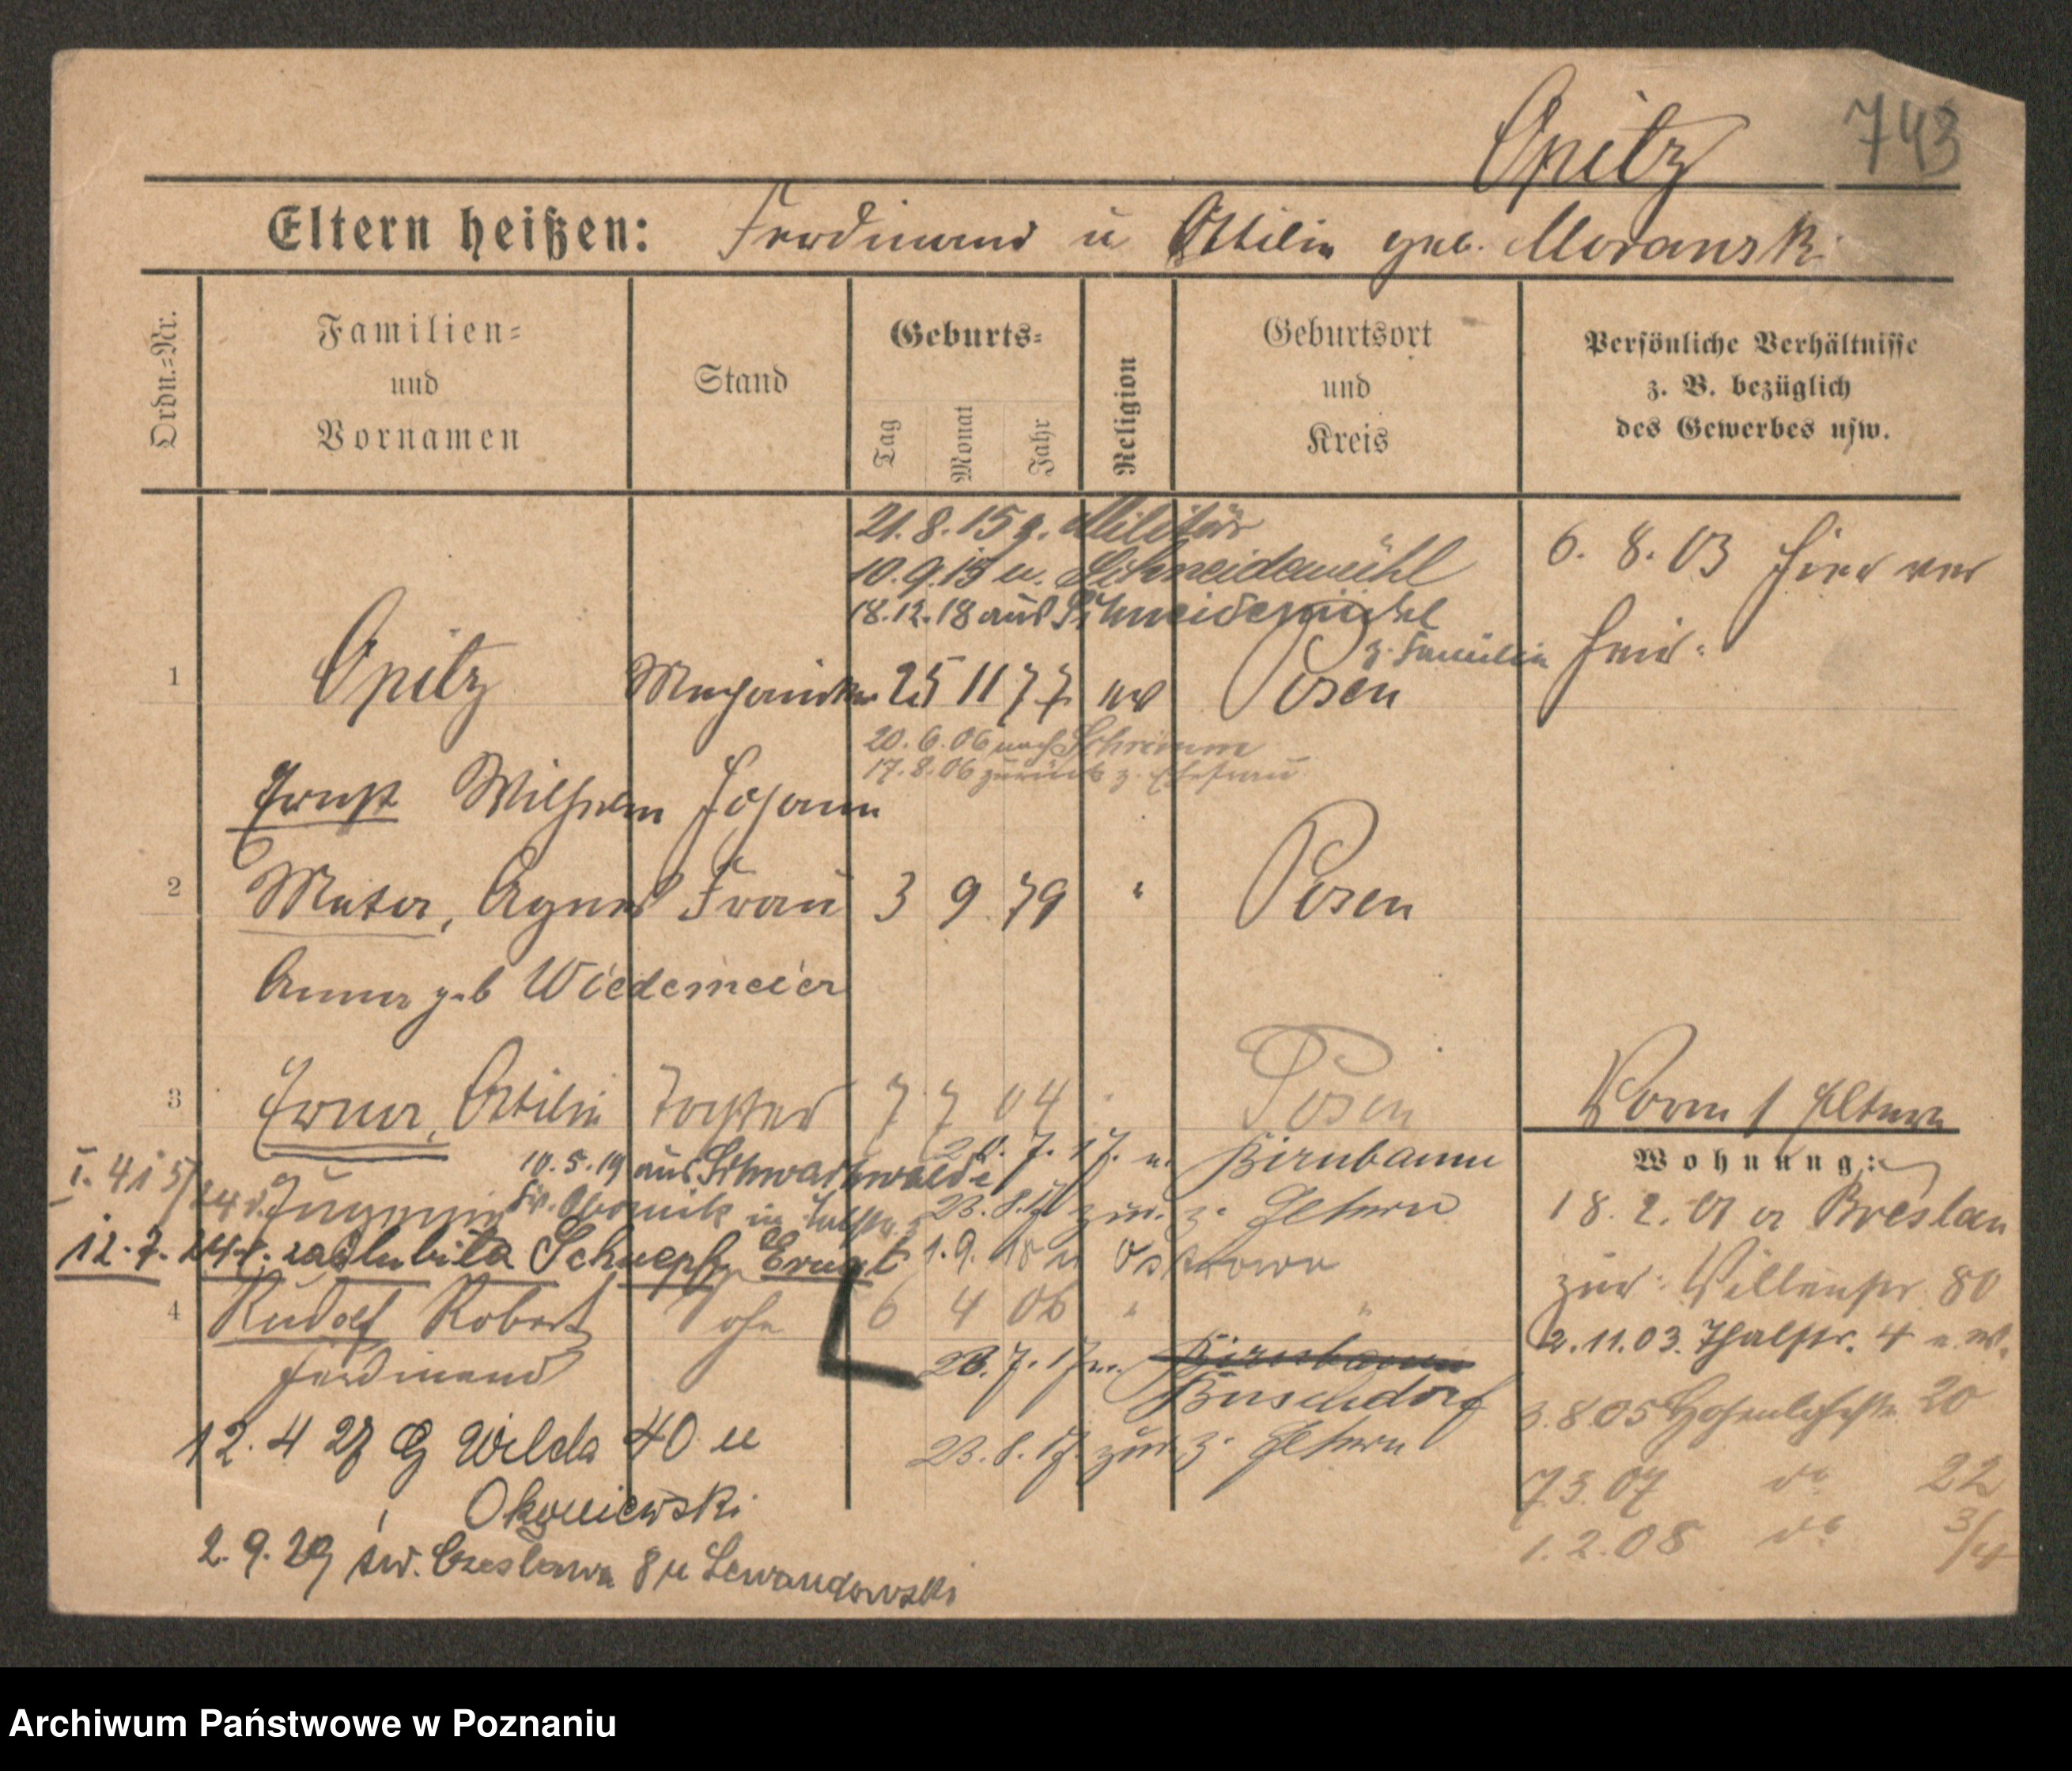 Opitz 743
Eltern heißen: Ferdinand u Ottilie geb. Moranski
Ordn.=Nr.
Familien=
und
Vornamen
Stand
Geburts=
Tag
Monat
Jahr
Religion
Geburtsort
und
Kreis
Persönliche Verhältnisse
z. B. bezüglich
des Gewerbes usw.
21.8.15 z. Militär
10.9.15 u. Schneidemühl
18.12.18 aus Schneidemühl
z. Familie
6. 8. 03 hier ver
heir:
1 Opitz Mechaniker 25 11 77 ev Posen
20.6.06 nach Schrimm
17.8.06 zurück z. Ehefrau
Ernst Wilhelm Johann
2 Agnes Frau 3 9 79 " Posen
Anna geb Wiedemeier
3 Erna, Ottilie Tochter 7 7 04 Posen
Vorm 1 Eltern
Wohnung:
20.7.17. u. Birnbaum
10.5.19 aus Schwarzwalde
Kr. Obornik
23.8.17 zur. z. Eltern
12.7. 24 r. zaślubiła Schnepf Ernst 1.9.18 u Ostrowo
4 Rudolf Robert Sohn 6 4 06 " "
Ferdinand
23.7.17 u. Birnbaum
Buschdorf
23.8.17. zur z. Eltern
18.2. 01 a Breslau
zur: 80
2.11.03. Thalstr. 4 u. W.
3.8.05 Hohenlohestr. 20
7.3.07 do 22
1.2.08 do 3/4
12. 4 27 G Wilda 40 u
Okoniewski
2. 9. 29 św. Czesława 8 u Lewandowski
Archiwum Państwowe w Poznaniu